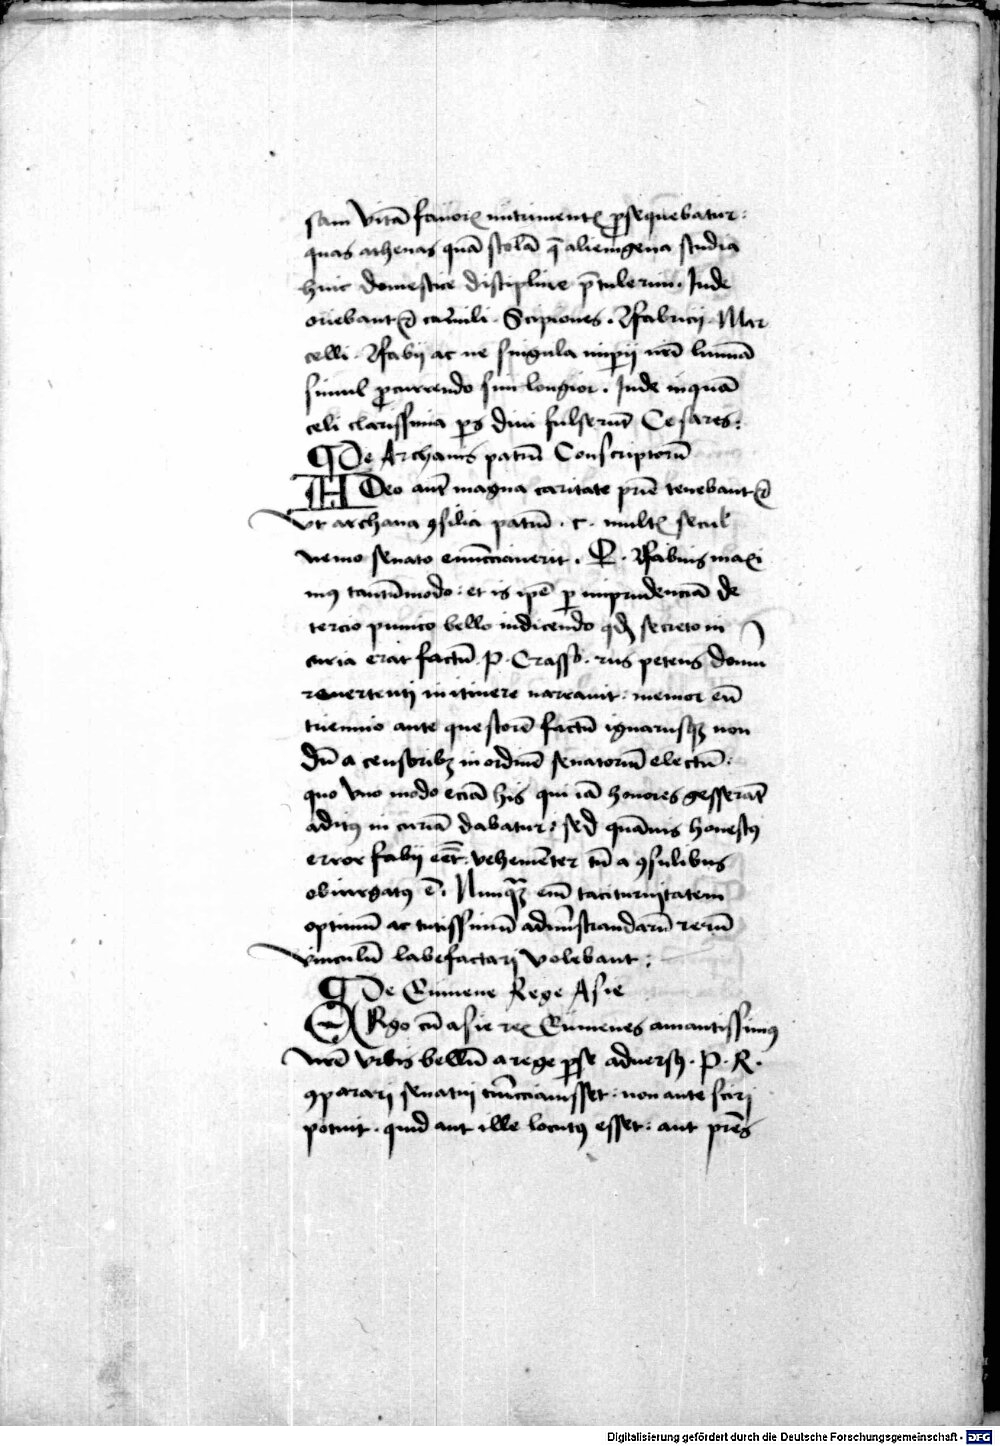 sam vitā favoꝝ nutrimentꝝ ꝓsequebatur:
quas athenas quā scolā q̄ alienigena studia
huic domestice discipline p̄tulerim. Inde
oriebant᷑ camili. Scipiones. Ffabricij. Mar
celli. Ffabij ac ne singula imꝑij nr̄i lumīa
simul ꝑcurrendo sim longior. Inde inquā
celi clarissima ꝑs diui fulserūt Cesares:
¶ De Archanis patrū Conscriptorū
ADeo aut̄ magna caritate pr̄ie tenebant᷑
vt archana ꝯsilia patrū. c. multꝝ secul
nemo senator enūcciauerit. Q. Ffabius maxi
mꝯ tantūmodo: et is ip̄e ꝑ imprudenciā de
tercio punico bello indicendo qđ secreto in
curia erat factū. P. Crasso. rus petens domū
reuertenti in itinere narrauit: memor eū
triennio ante questorē factū ignarusqꝫ non
dū a censoribꝫ in ordinē senatoriū electū:
quo vno modo eciā his qui iā honores gesserāt
aditꝯ in curiā dabatur: sed quāuis honestꝯ
error fabij eēt: vehemēter tn̄ a ꝯsulibus
obiurgatꝯ ē. Nunqꝫ eī taciturnitatem
optimū ac tutissimū admīstrandarū rerū
vinculū labefactari volebant:
¶ De Eumene Rege Asie
ERgo cū asie rex Eumenes amantissimꝯ
nr̄e vrbis bellū a rege ꝑse aduersꝯ. P. R.
ꝯparari senatui enūcciauisset: non ante sciri
potuit. quid aut ille locutꝯ esset: aut pr̄es
Digitalisierung gefördert durch die Deutsche Forschungsgemeinschaft - DFG